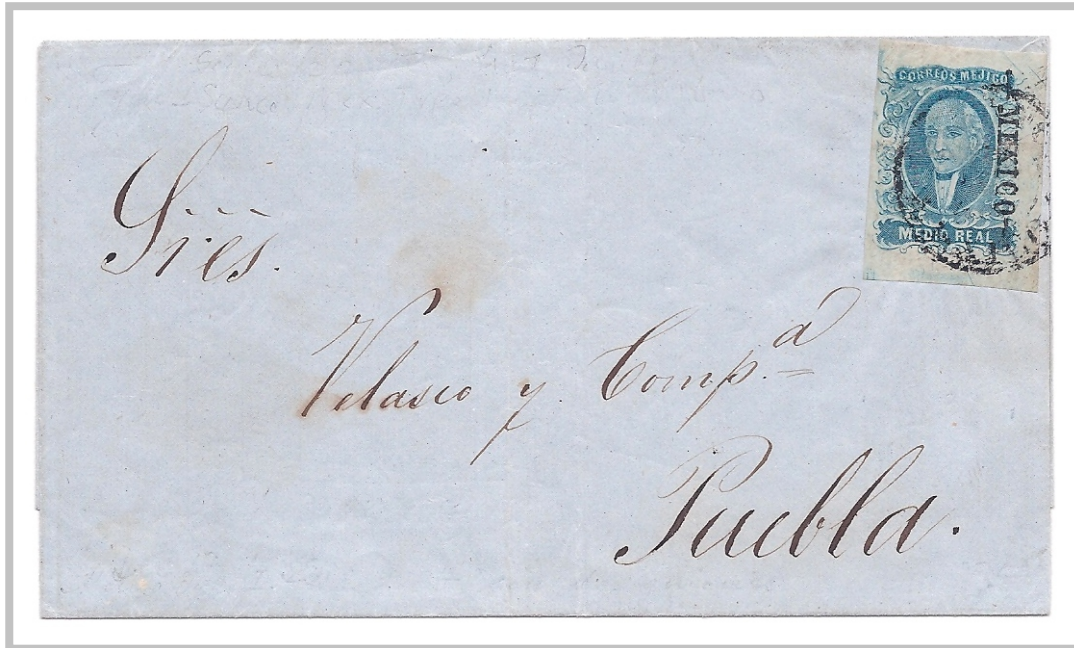 CORREOS MEJICO
MEXICO
MEDIO REAL
Sres.
Velasco y Comp.ª
Puebla.